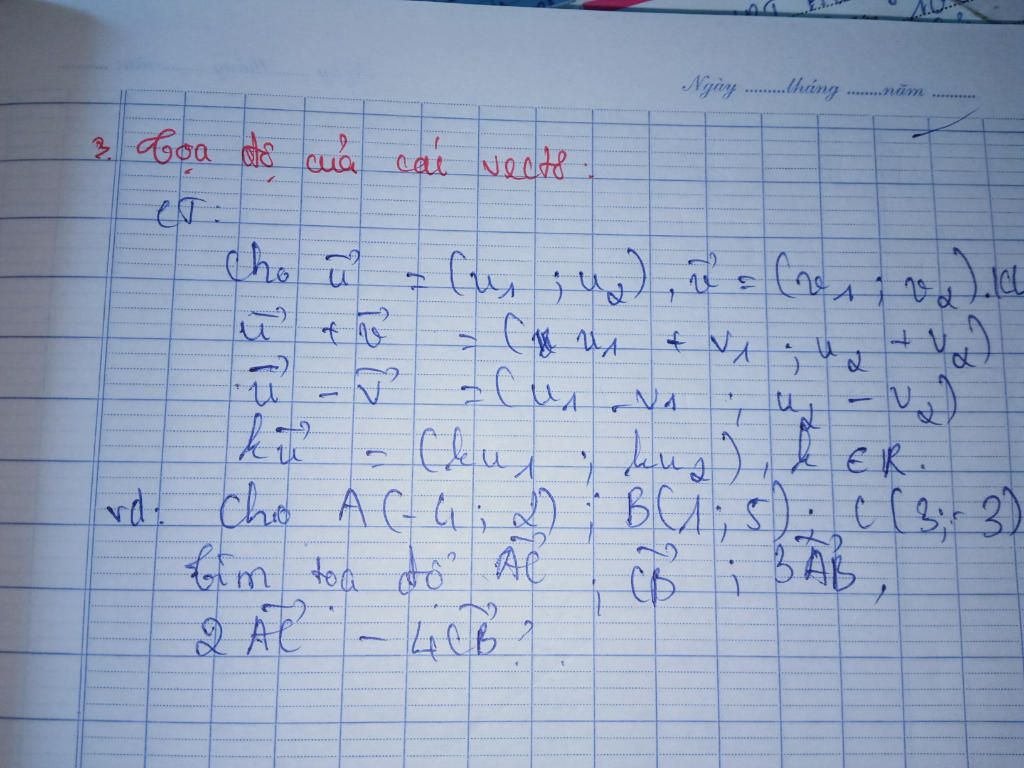 Ngày ......... tháng ........ năm ..........
3. Tọa độ của các vectơ.
CT:
Cho u⃗ = (u₁ ; u₂), v⃗ = (v₁ ; v₂). Khi
u⃗ + v⃗ = (u₁ + v₁ ; u₂ + v₂)
u⃗ - v⃗ = (u₁ - v₁ ; u₂ - v₂)
ku⃗ = (ku₁ ; ku₂), k ∈ R.
vd: Cho A(-4; 2) ; B(1; 5) ; C(3; -3)
Tìm tọa độ AC⃗ ; CB⃗ ; 3AB⃗,
2AC⃗ - 4CB⃗ ?